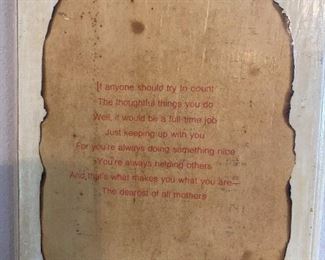 If anyone should try to count
The thoughtful things you do
Well, it would be a full-time job
Just keeping up with you
For you're always doing something nice
You're always helping others
And that's what makes you what you are—
The dearest of all mothers